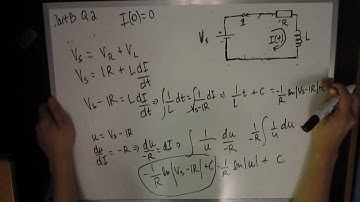 Part B Q2 I(0)=0
V_S = V_R + V_L
V_S = IR + L dI/dt
V_S - IR = L dI/dt ⇒ ∫ 1/L dt = ∫ 1/(V_S-IR) dI ⇒ 1/L t + C = -1/R ln|V_S-IR|+C
u = V_S - IR
du/dI = -R ⇒ du/-R = dI ⇒ ∫ 1/u du/-R -1/R ∫ 1/u du
-1/R ln|V_S-IR|+C = -1/R ln|u| + C
V_S
1
R
I(t)
L